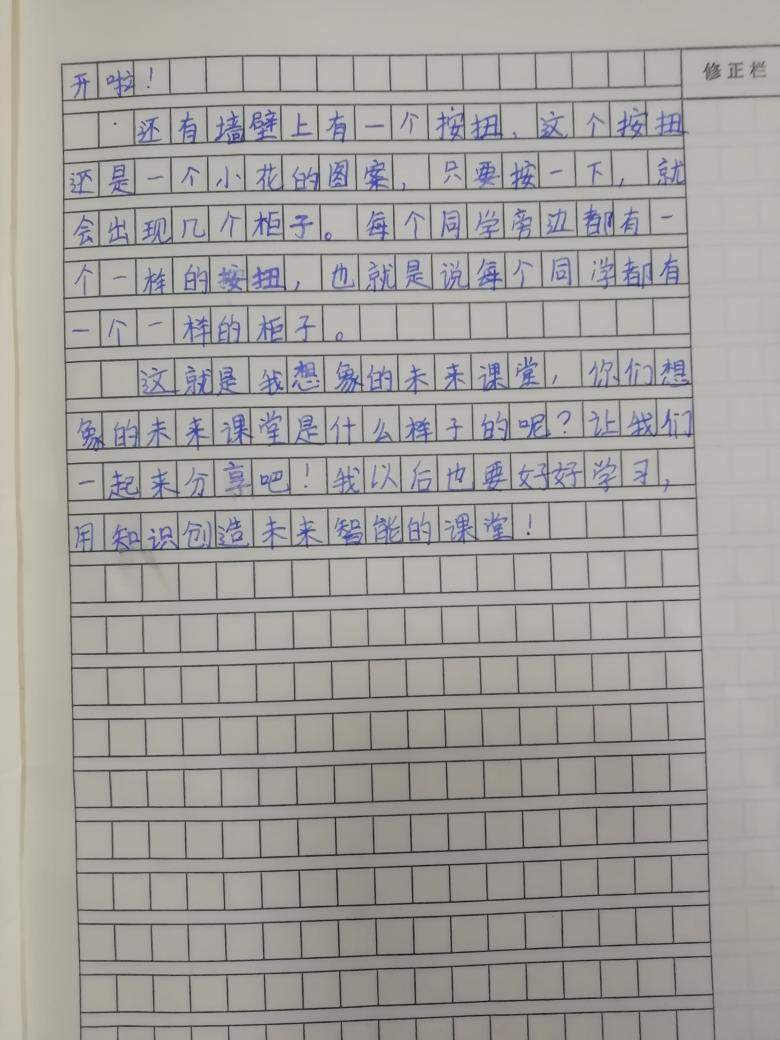 修正栏
开啦！
还有墙壁上有一个按扭、这个按扭
还是一个小花的图案，只要按一下，就
会出现几个柜子。每个同学旁边都有一
个一样的按扭，也就是说每个同学都有
一个一样的柜子。
这就是我想象的未来课堂，你们想
象的未来课堂是什么样子的呢？让我们
一起来分享吧！我以后也要好好学习，
用知识创造未来智能的课堂！